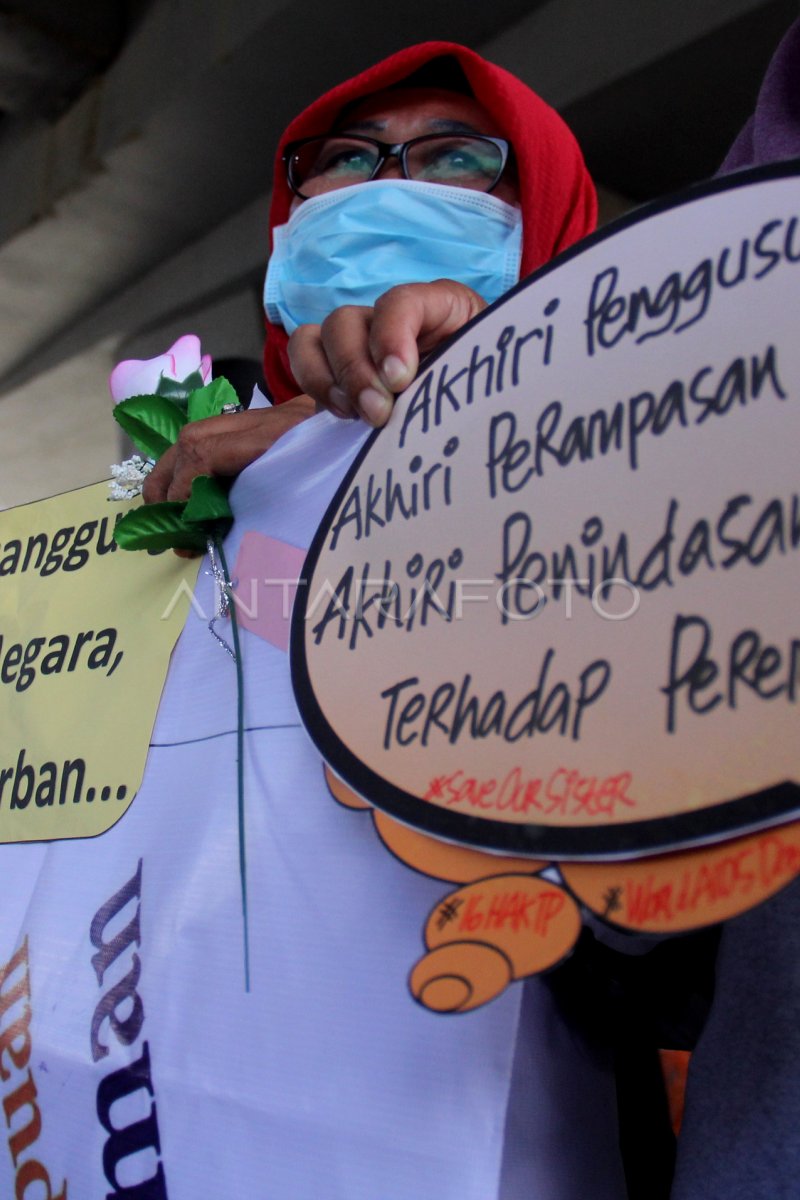 Akhiri Penggusu
Akhiri Perampasan
Akhiri Penindasan
Terhadap Perem
#SaveOurSister
#16HAKTP
#WorldAIDSDa
anggu
Negara,
rban...
ANTARAFOTO
aman
mand